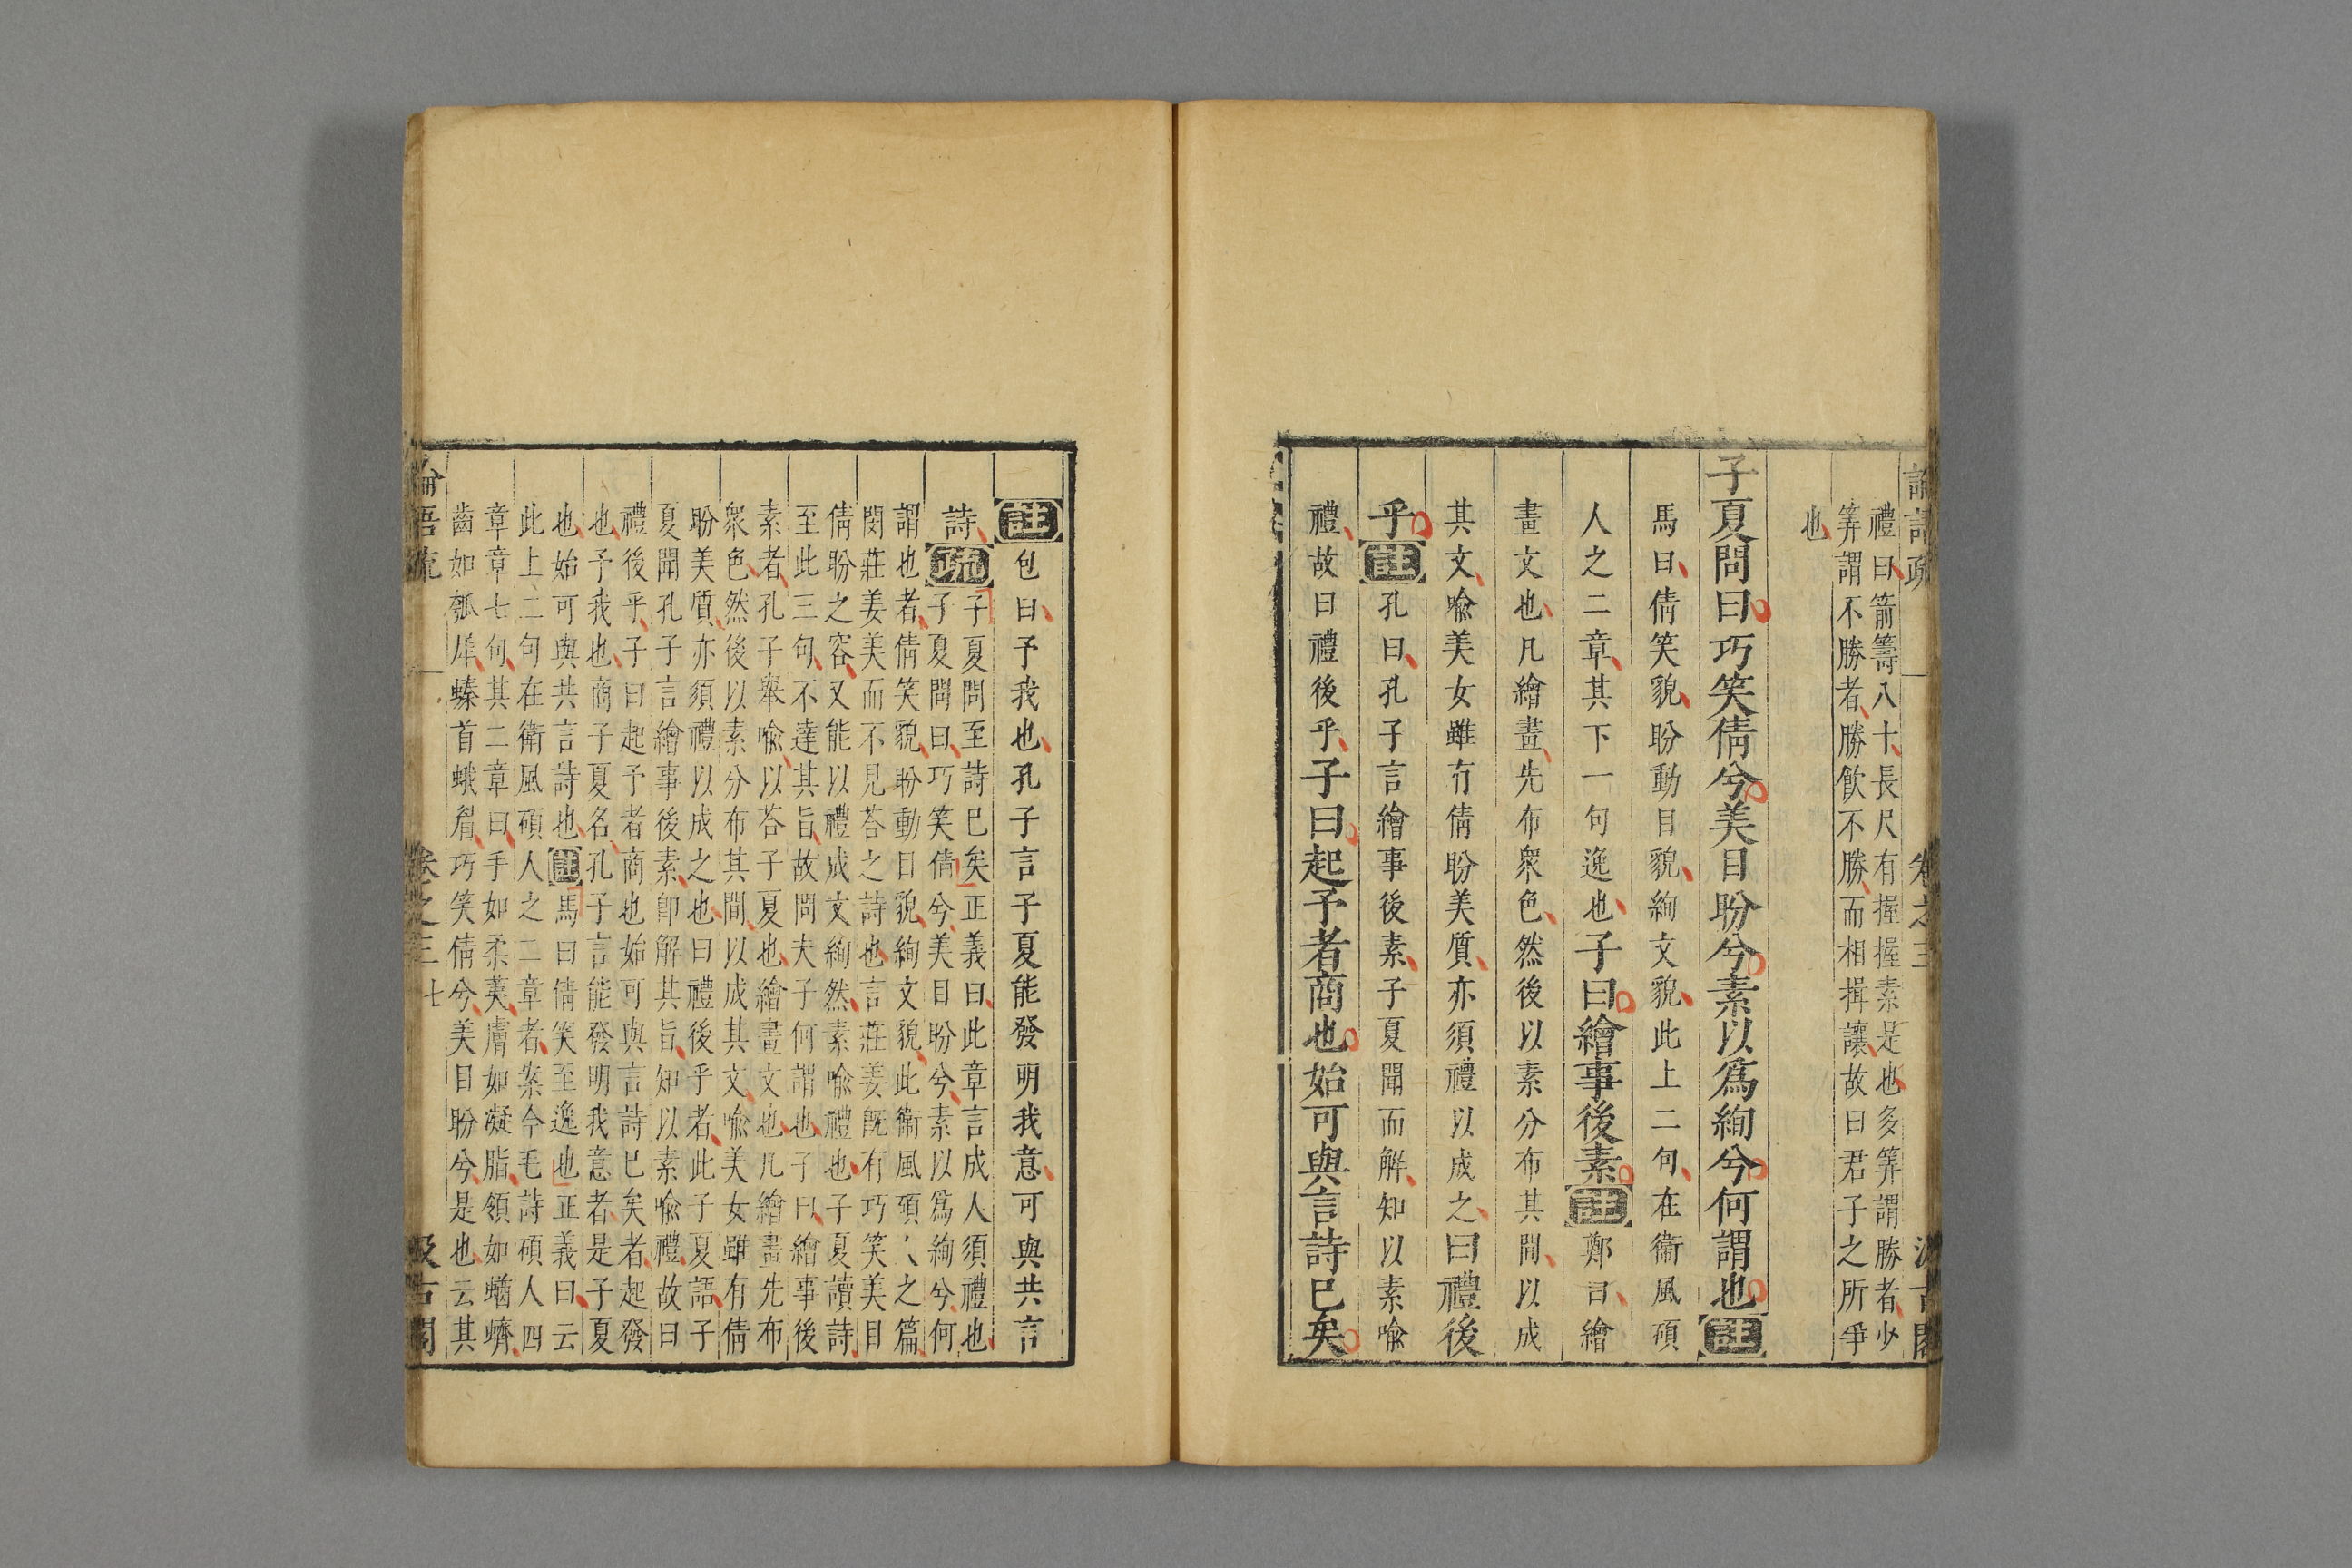 論語疏 卷之三 汲古閣
禮曰箭籌八十長尺有握握素是也多筭謂勝者少
筭謂不勝者勝飲不勝而相揖讓故曰君子之所爭
也
子夏問曰巧笑倩兮美目盼兮素以爲絢兮何謂也註
馬曰倩笑貌盼動目貌絢文貌此上二句在衞風碩
人之二章其下一句逸也子曰繪事後素註鄭曰繪
畫文也凡繪畫先布衆色然後以素分布其間以成
其文喻美女雖有倩盼美質亦須禮以成之曰禮後
乎註孔曰孔子言繪事後素子夏聞而解知以素喻
禮故曰禮後乎子曰起予者商也始可與言詩已矣
註包曰予我也孔子言子夏能發明我意可與共言
詩疏
子夏問至詩已矣正義曰此章言成人須禮也
子夏問曰巧笑倩兮美目盼兮素以爲絢兮何
謂也者倩笑貌盼動目貌絢文貌此衞風碩人之篇
閔莊姜美而不見荅之詩也言莊姜旣有巧笑美目
倩盼之容又能以禮成文絢然素喻禮也子夏讀詩
至此三句不達其旨故問夫子何謂也子曰繪事後
素者孔子舉喻以荅子夏也繪畫文也凡繪畫先布
衆色然後以素分布其間以成其文喻美女雖有倩
盼美質亦須禮以成之也曰禮後乎者此子夏語子
夏聞孔子言繪事後素卽解其旨知以素喻禮故曰
禮後乎子曰起予者商也始可與言詩已矣者起發
也予我也商子夏名孔子言能發明我意者是子夏
也始可與共言詩也註馬曰倩笑至逸也正義曰云
此上二句在衞風碩人之二章者案今毛詩碩人四
章章七句其二章曰手如柔荑膚如凝脂領如蝤蠐
齒如瓠犀螓首蛾眉巧笑倩兮美目盼兮是也云其
論語疏 卷之三 七 汲古閣